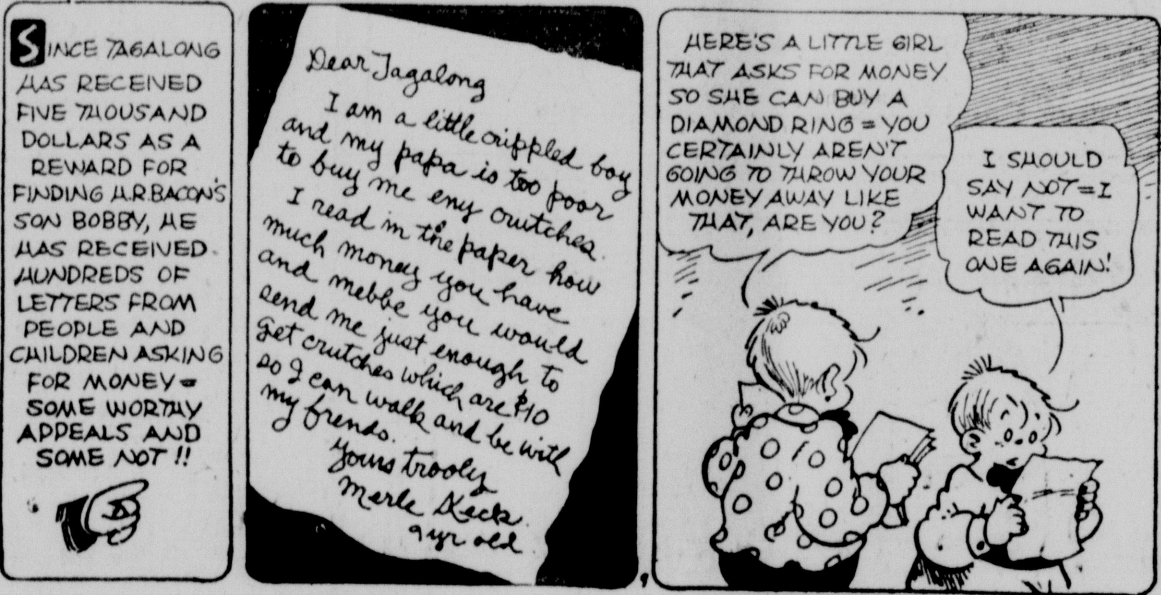 SINCE TAGALONG
HAS RECEIVED
FIVE THOUSAND
DOLLARS AS A
REWARD FOR
FINDING H.R. BACON'S
SON BOBBY, HE
HAS RECEIVED
HUNDREDS OF
LETTERS FROM
PEOPLE AND
CHILDREN ASKING
FOR MONEY =
SOME WORTHY
APPEALS AND
SOME NOT!!
Dear Tagalong
I am a little crippled boy
and my papa is too poor
to buy me eny crutches.
I read in the paper how
much money you have
and mebbe you would
send me just enough to
get crutches which are $10
so I can walk and be with
my frends.
Yours trooley
Merle Keck.
9 yr old
HERE'S A LITTLE GIRL
THAT ASKS FOR MONEY
SO SHE CAN BUY A
DIAMOND RING = YOU
CERTAINLY AREN'T
GOING TO THROW YOUR
MONEY AWAY LIKE
THAT, ARE YOU?
I SHOULD
SAY NOT = I
WANT TO
READ THIS
ONE AGAIN!